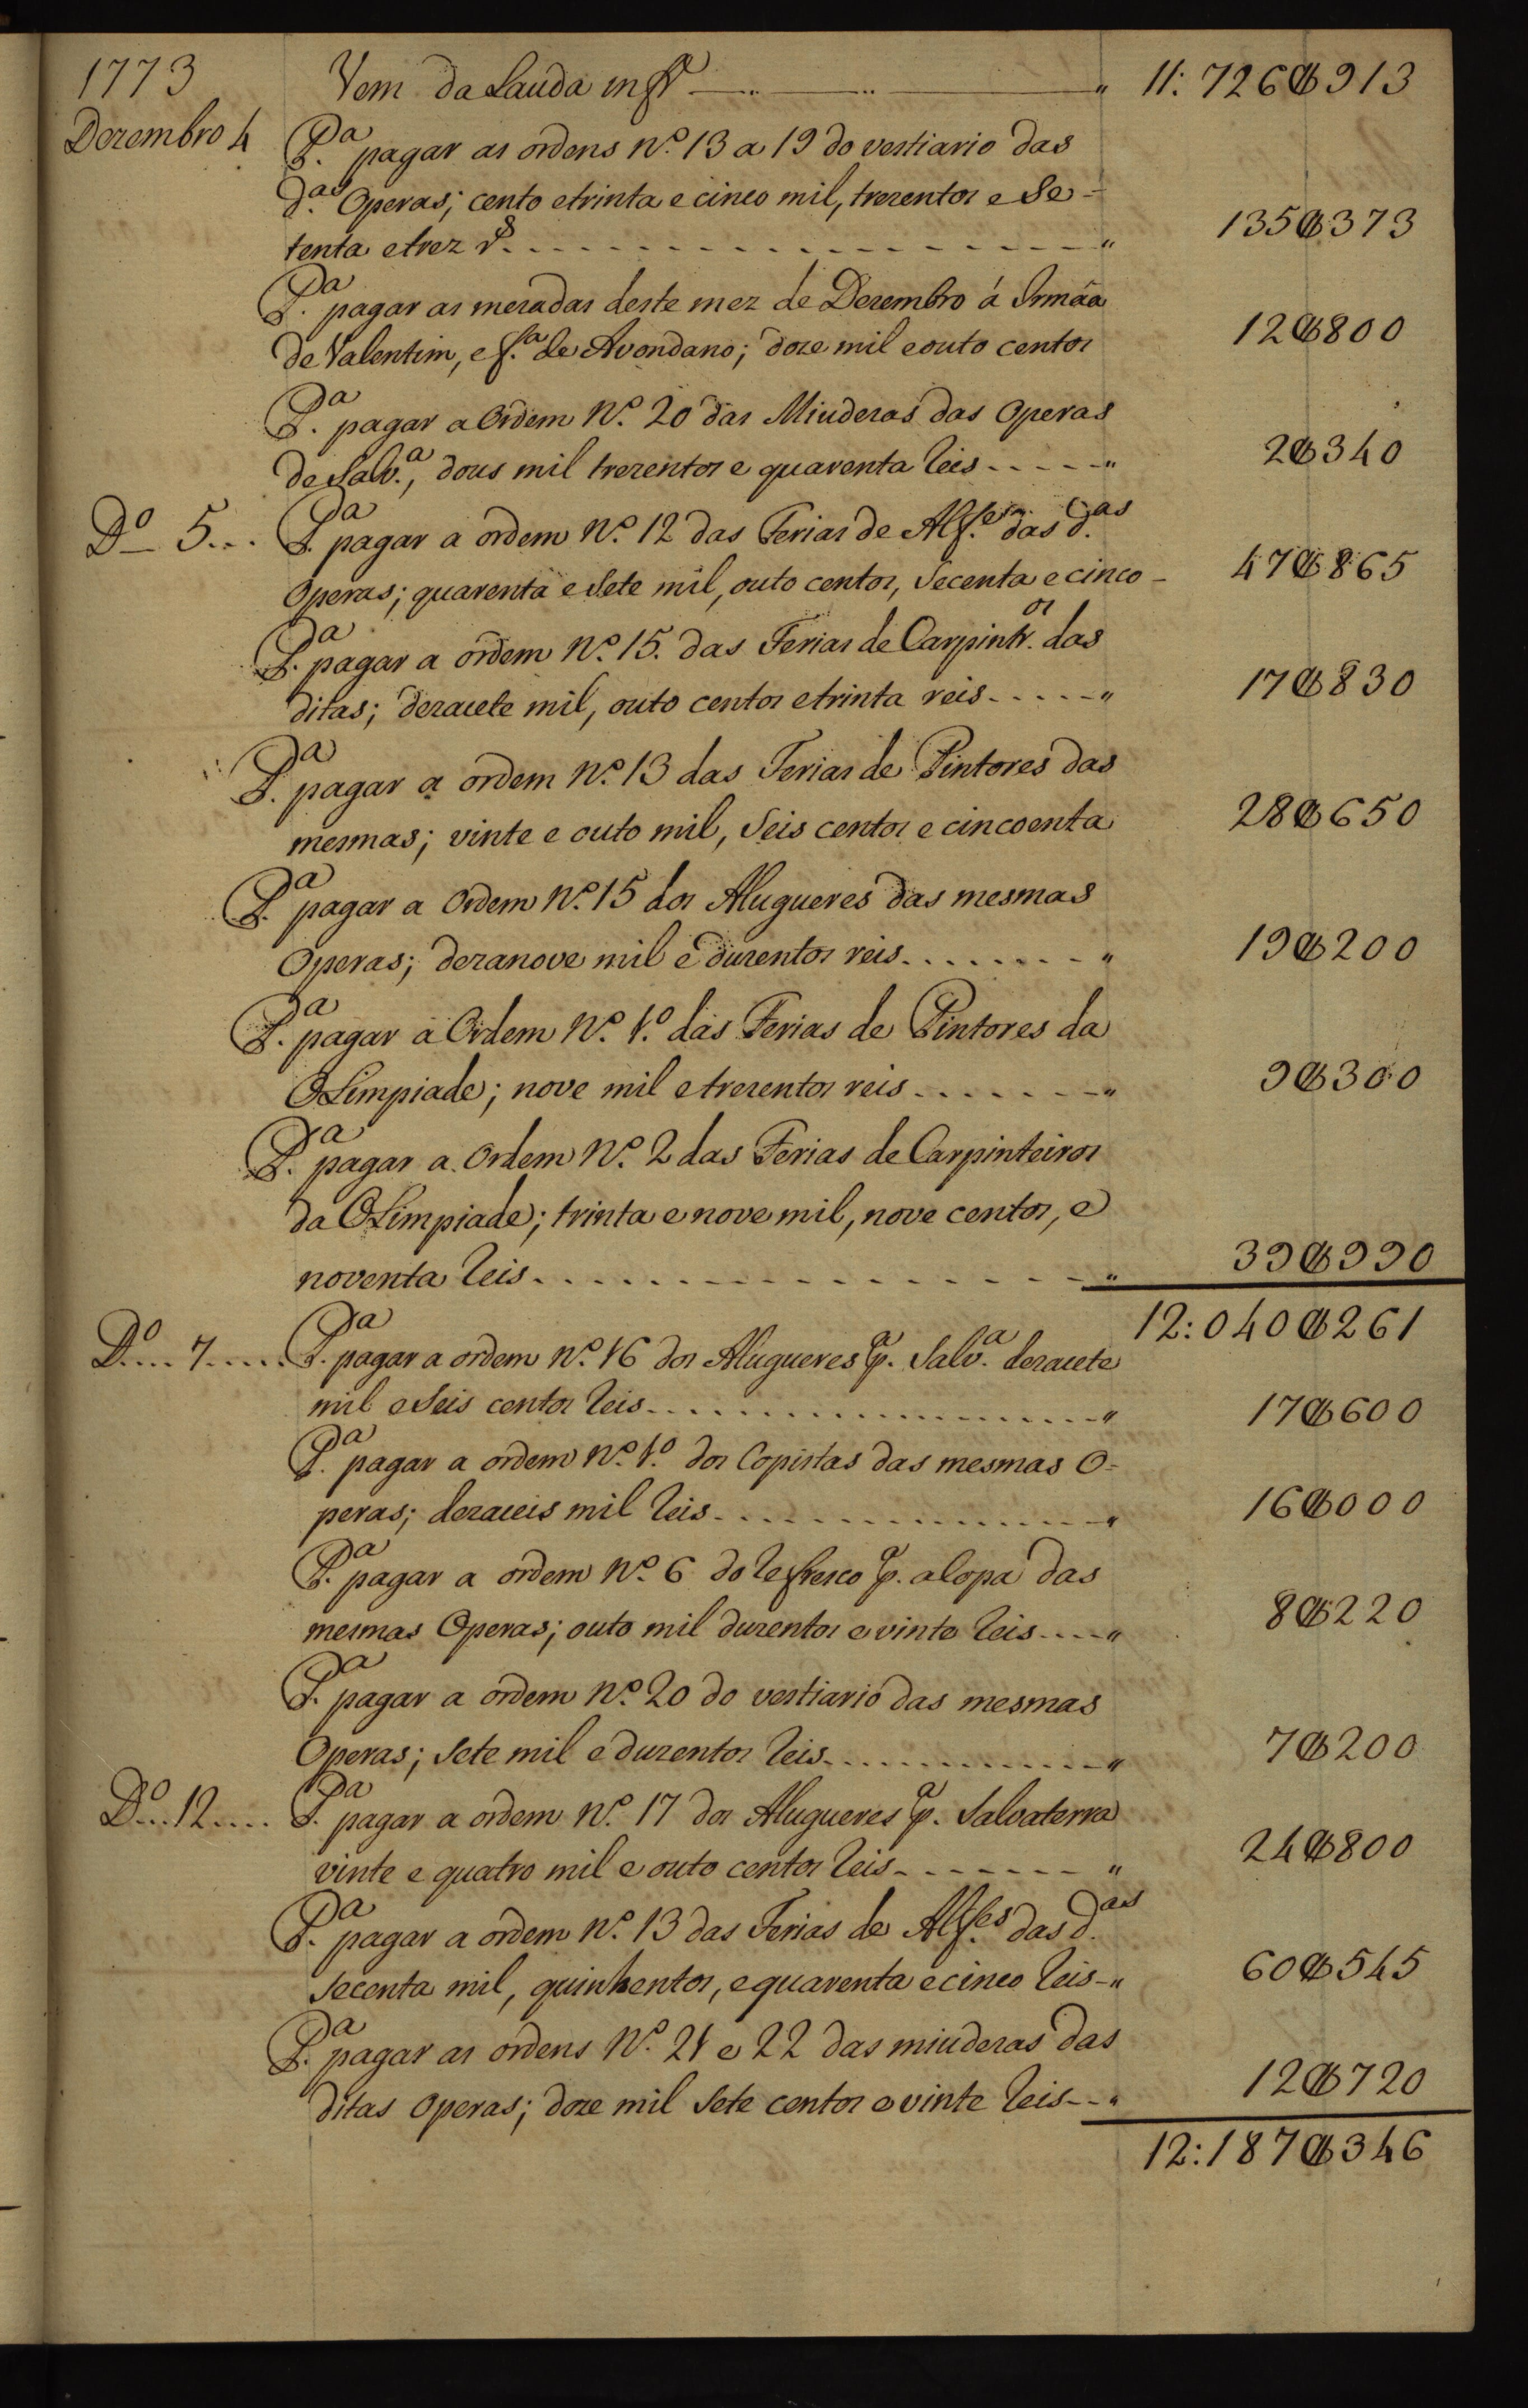 1773 Vem da Lauda in fr.ª " 11:726$913
Dezembro 4 P.ª pagar as ordens N.º 13 a 19 do vestiario das
d.as Operas; cento etrinta e cinco mil, trezentos e Se-
tenta etrez r.s " 135$373
P.ª pagar as mezadas deste mez de Dezembro á Irmãa
de Valentim, e f.ª de Avondano; doze mil eouto centos 12$800
P.ª pagar a Ordem N.º 20 das Miudezas das Operas
de Salv.ª, dous mil trezentos e quarenta Reis " 2$340
D.º 5... P.ª pagar a ordem N.º 12 das Ferias de Alf.es das d.as
Operas; quarenta e Sete mil, outo centos, Secenta e cinco - 47$865
P.ª pagar a ordem N.º 15. das Ferias de Carpintr.os das
ditas; dezacete mil, outo centos etrinta reis " 17$830
P.ª pagar a ordem N.º 13 das Ferias de Pintores das
mesmas; vinte e outo mil, Seis centos e cincoenta 28$650
P.ª pagar a Ordem N.º 15 dos Alugueres das mesmas
Operas; dezanove mil e duzentos reis " 19$200
P.ª pagar a Ordem N.º 1.º das Ferias de Pintores da
OLimpiade; nove mil etrezentos reis " 9$300
P.ª pagar a Ordem N.º 2 das Ferias de Carpinteiros
da OLimpiade; trinta e nove mil, nove centos, e
noventa Reis " 39$990
12:040$261
D.º 7 P.ª pagar a ordem N.º 16 dos Alugueres p.ª Salv.ª dezacete
mil e Seis centos Reis " 17$600
P.ª pagar a ordem N.º 1.º dos Copistas das mesmas O=
peras; dezaceis mil Reis " 16$000
P.ª pagar a ordem N.º 6 do Refresco p.ª a Copa das
mesmas Operas; outo mil duzentos e vinte Reis " 8$220
P.ª pagar a ordem N.º 20 do vestiario das mesmas
Operas; Sete mil e duzentos Reis " 7$200
D.º 12 P.ª pagar a ordem N.º 17 dos Alugueres p.ª Salvaterra
vinte e quatro mil e outo centos Reis " 24$800
P.ª pagar a ordem N.º 13 das Ferias de Alf.es das d.as
Secenta mil, quinhentos, e quarenta e cinco Reis " 60$545
P.ª pagar as ordens N.º 21 e 22 das miudezas das
ditas Operas; doze mil Sete centos e vinte Reis " 12$720
12:187$346